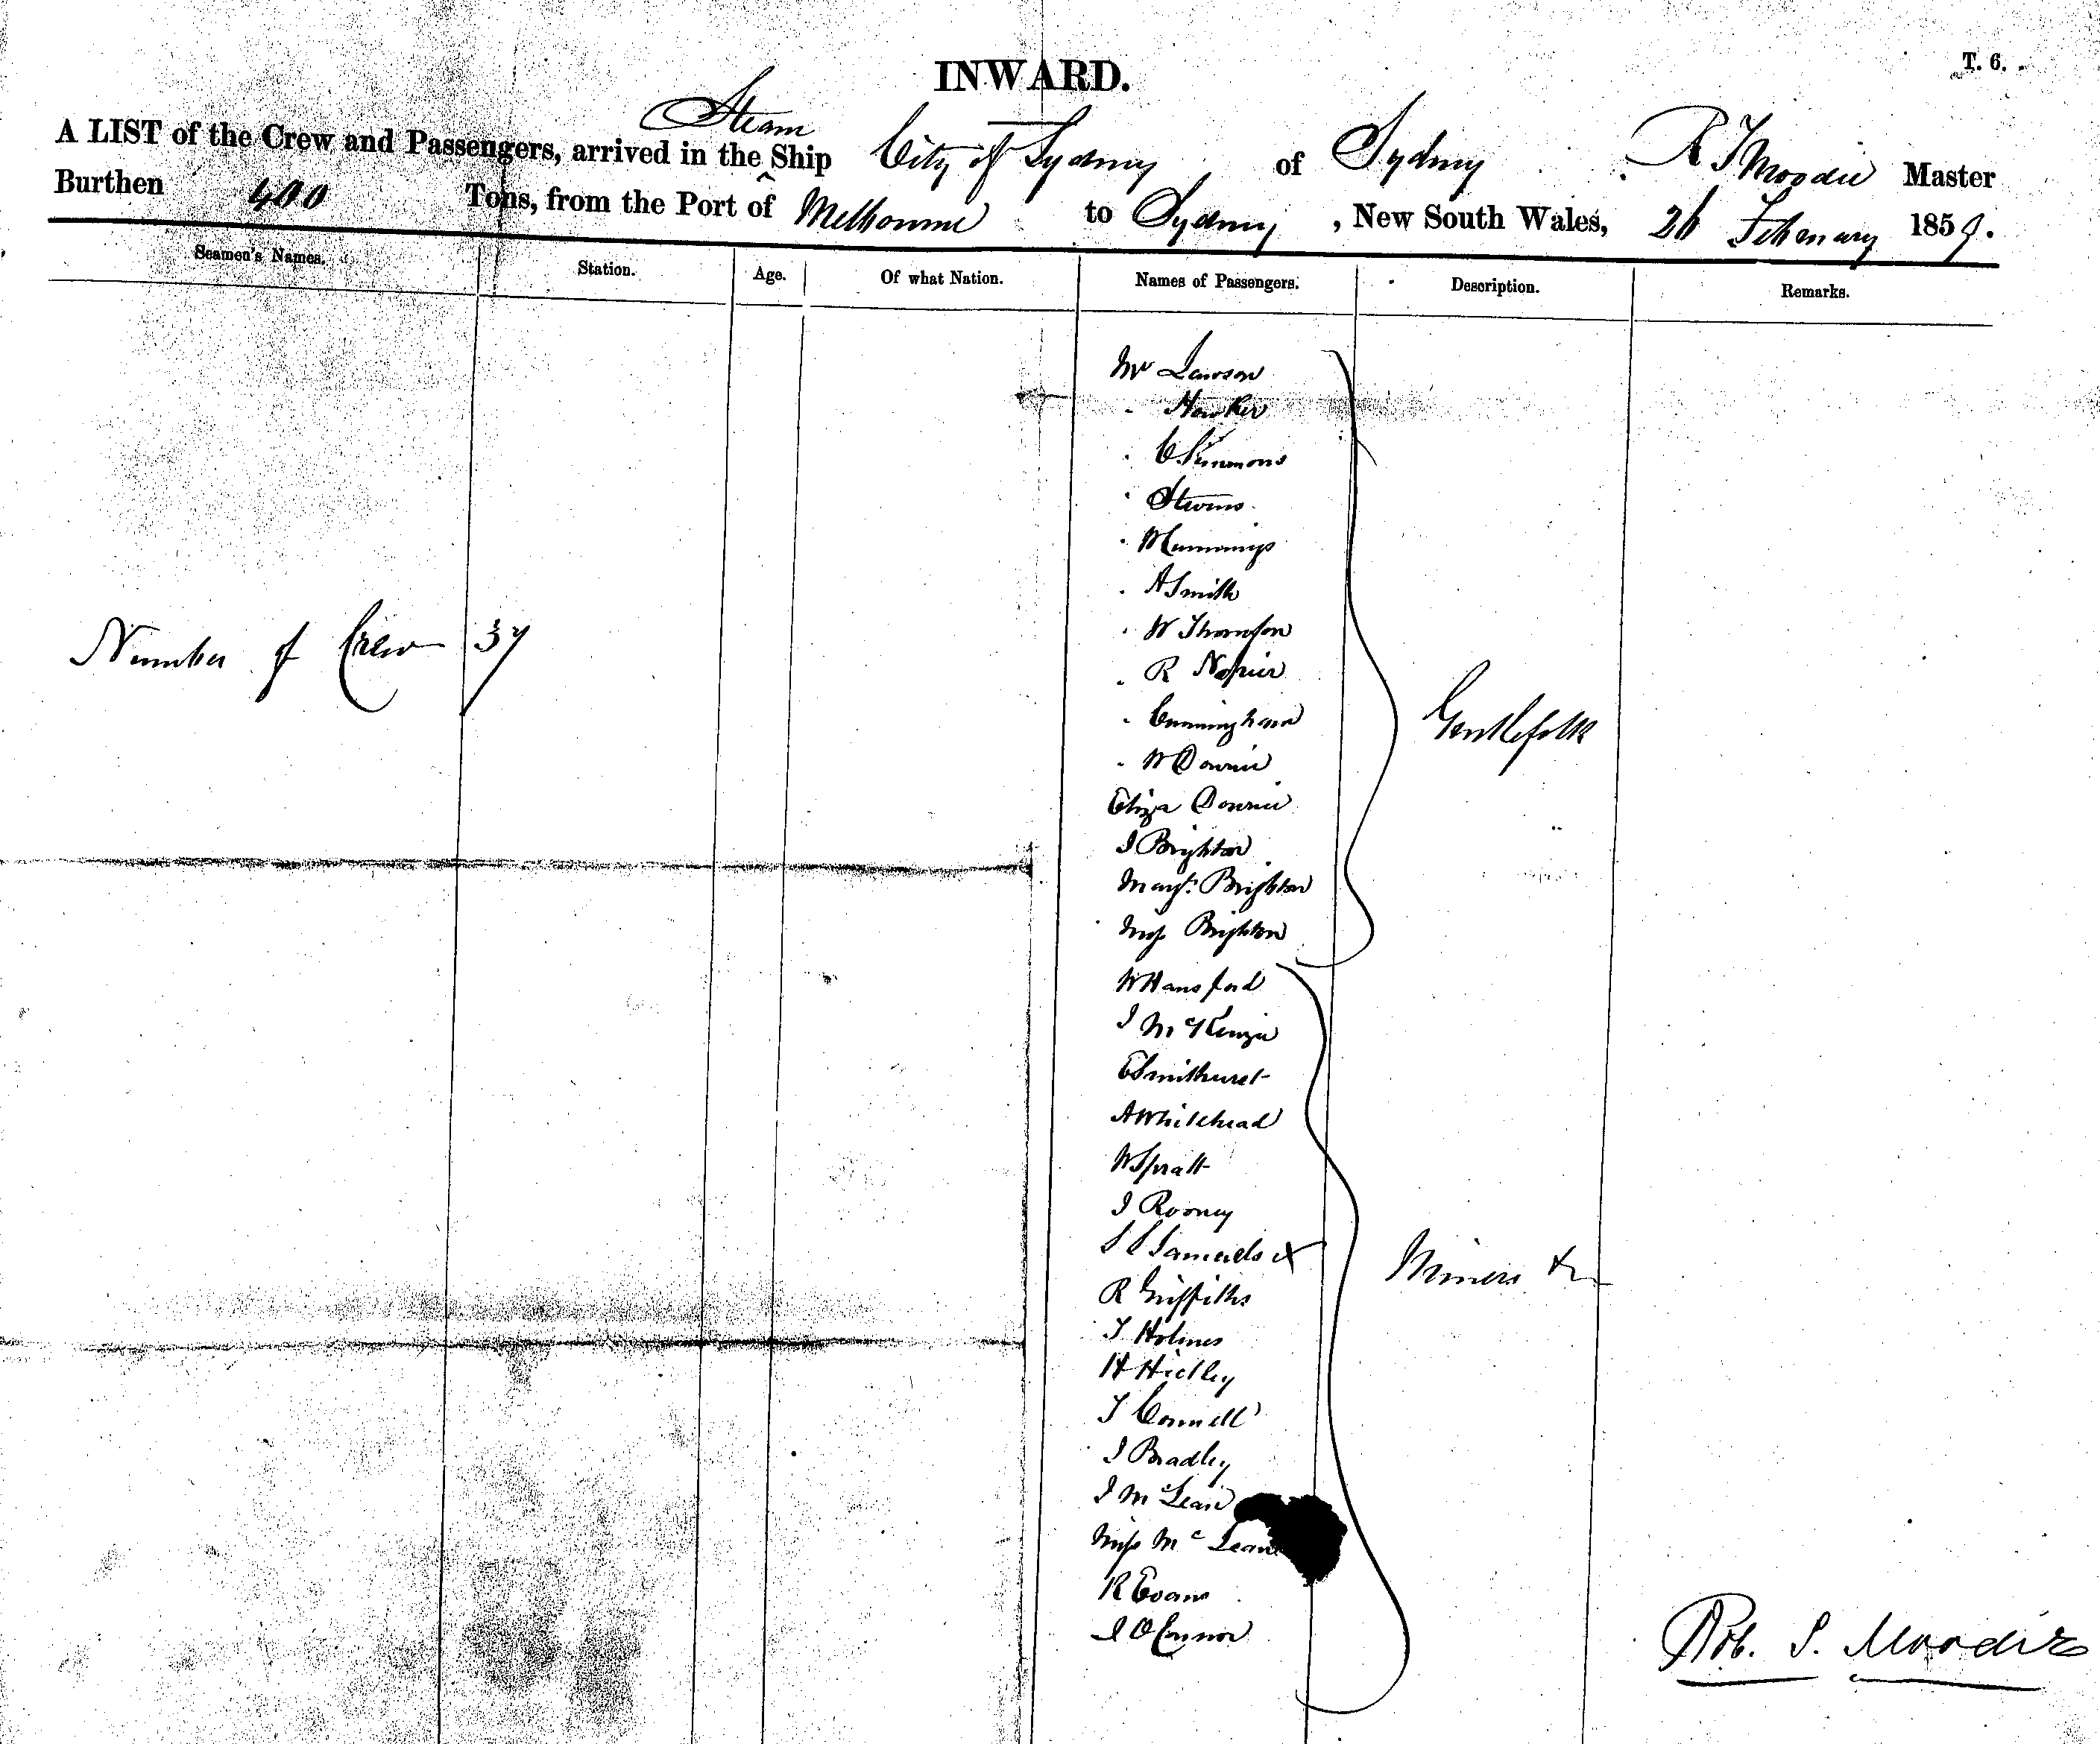 INWARD.
T. 6.
Steam
A LIST of the Crew and Passengers, arrived in the Ship City of Sydney of Sydney R S Moodie Master
Burthen 400 Tons, from the Port of Melbourne to Sydney, New South Wales, 26 February 1859.
Seamen's Names. Station. Age. Of what Nation. Names of Passengers. Description. Remarks.
Mr Lawson
" Hawker
" C Simmons
" Stevens
" Mummings
" A Smith
" W Thomson
" R Napier
" Cunningham
" W Downie
Eliza Downie
J Brighton
Margt. Brighton
Miss Brighton
Gentlefolk
Number of Crew 37
W Hansford
J McKenzie
E Smithurst
A Whitehead
W Spratt
J Rooney
S S Samuels x
R Griffiths
T Holmes
H Hedley
T Connell
J Bradley
J McLean
Miss McLean
R Evans
J O Connor
Miners &c
Rob. S. Moodie